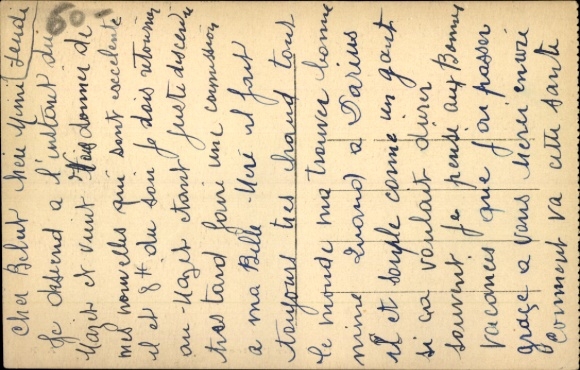 Cher Bebert chère Mimi Lundi
Je descend a l'instant du
Mazet et vient vous donner de
mes nouvelles qui sont excelente
il et 8H du soir je dois retourner
au Mazet etant juste descendu
tres tard faire une commission
a ma Belle-Mere il fait
toujours tres chaud tous
le monde ma trouver bonne
mine quand a Darius
il et souple comme un gant
si ça voulait durer
souvent je pense aux Bonnes
vacances que j'ai passer
grâce a vous Merci encore
Comment va cette santé
60